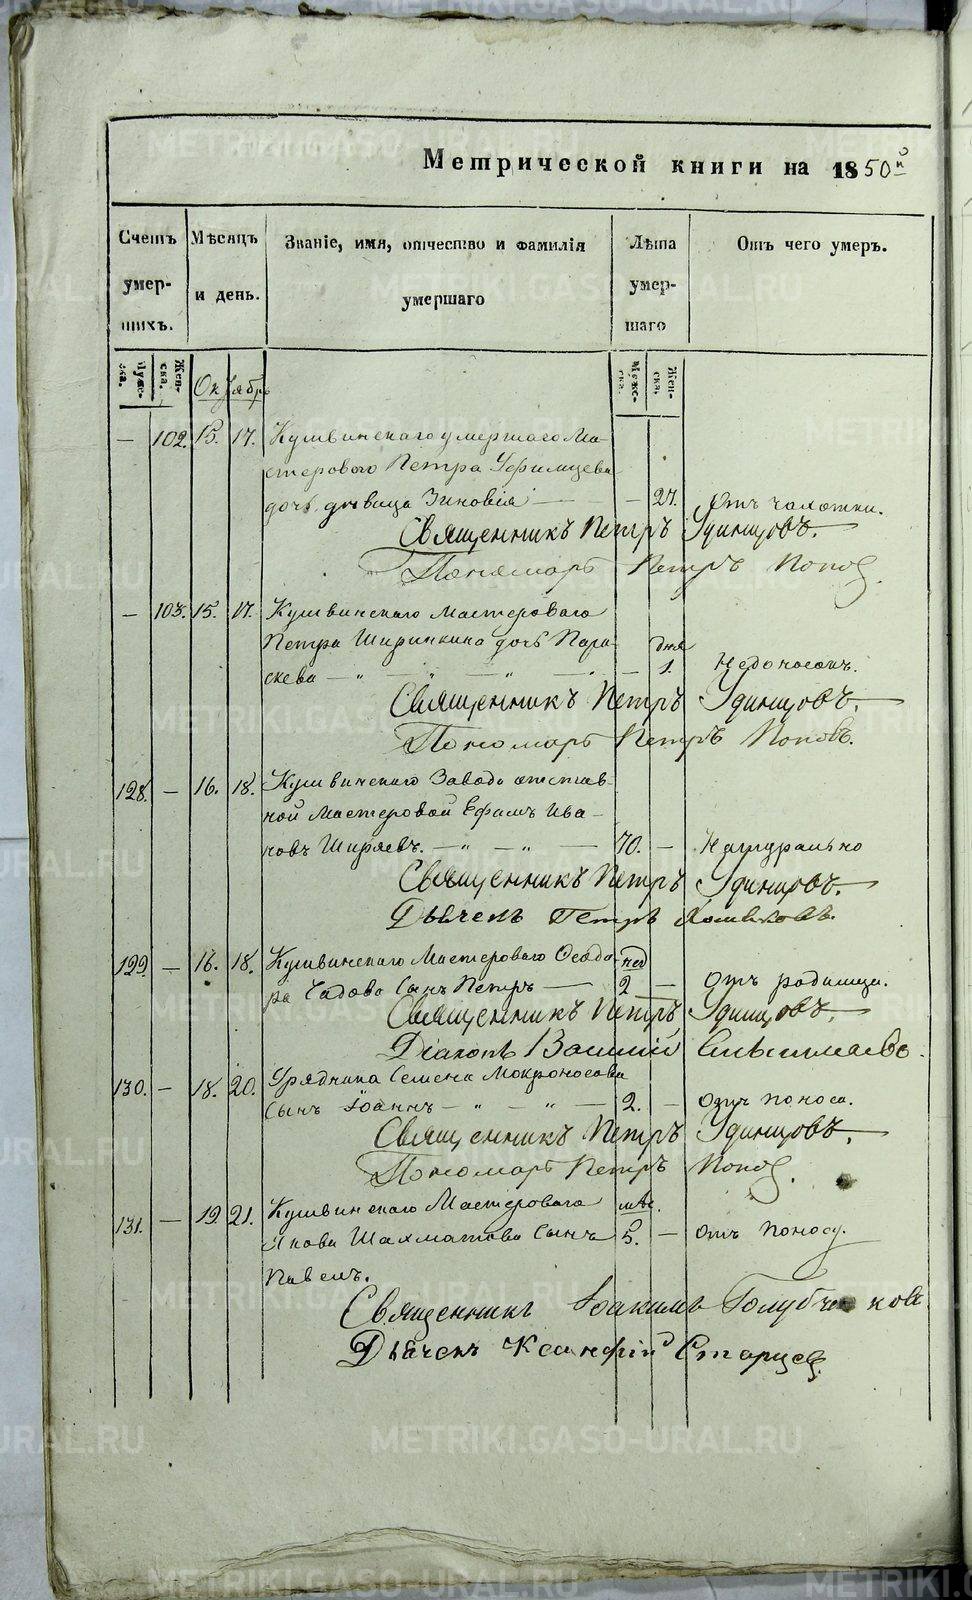 Метрической книги на 1850й
Счетъ умершихъ.
Мѣсяцъ и день.
Званіе, имя, отчество и фамилія умершаго
Лѣта умершаго
Отъ чего умеръ.
Мужеска. Женска. Октябрь Мужеска. Женска.
— 102. 15. 17. Кушвинскаго умершаго Ма-
стероваго Петра
дочь дѣвица Зиновія — — 27. Отъ чахотки.
Священникъ Петръ Удинцовъ.
Пономарь Петръ Попов
— 103. 15. 17. Кушвинскаго Мастероваго
Петра Ширинкина дочь Пара- дня
скева — „ — „ — „ — „ — 1. Недоносокъ.
Священникъ Петръ Удинцовъ.
Пономарь Петръ Поповъ.
128. — 16. 18. Кушвинскаго Завода отстав-
ной Мастеровой Ефимъ Ива-
новъ Ширяевъ. — „ — „ — 70. — Натурально
Священникъ Петръ Удинцовъ.
Дьячекъ Петръ
129. — 16. 18. Кушвинскаго Мастероваго нед
ра Сынъ Петръ — 2 — Отъ родимца.
Священникъ Петръ Удинцовъ.
Діаконъ Василій
130. — 18. 20. Урядника Семена Мокроносова
Сынъ Іоаннъ — „ — „ — 2. — Отъ поноса.
Священникъ Петръ Удинцовъ.
Пономарь Петръ Попов.
131. — 19. 21. Кушвинскаго Мастероваго мѣс.
Якова Шахматова Сынъ 5. — Отъ поносу.
Павелъ.
Священникъ Іоакимъ
Дьячекъ Ксанфій Старцев.
METRIKI.GASO-URAL.RU